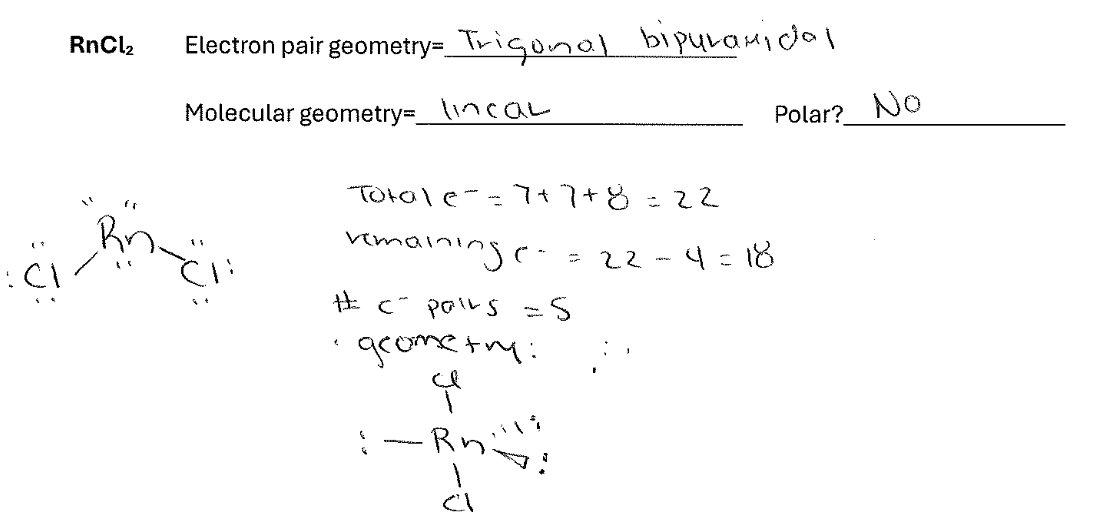 RnCl₂ Electron pair geometry= Trigonal bipyramidal
Molecular geometry= linear Polar? No
Total e⁻ = 7+7+8 = 22
remaining e⁻ = 22 - 4 = 18
:Cl Rn Cl:
# e⁻ pairs = 5
geometry:
Cl
: — Rn :
Cl